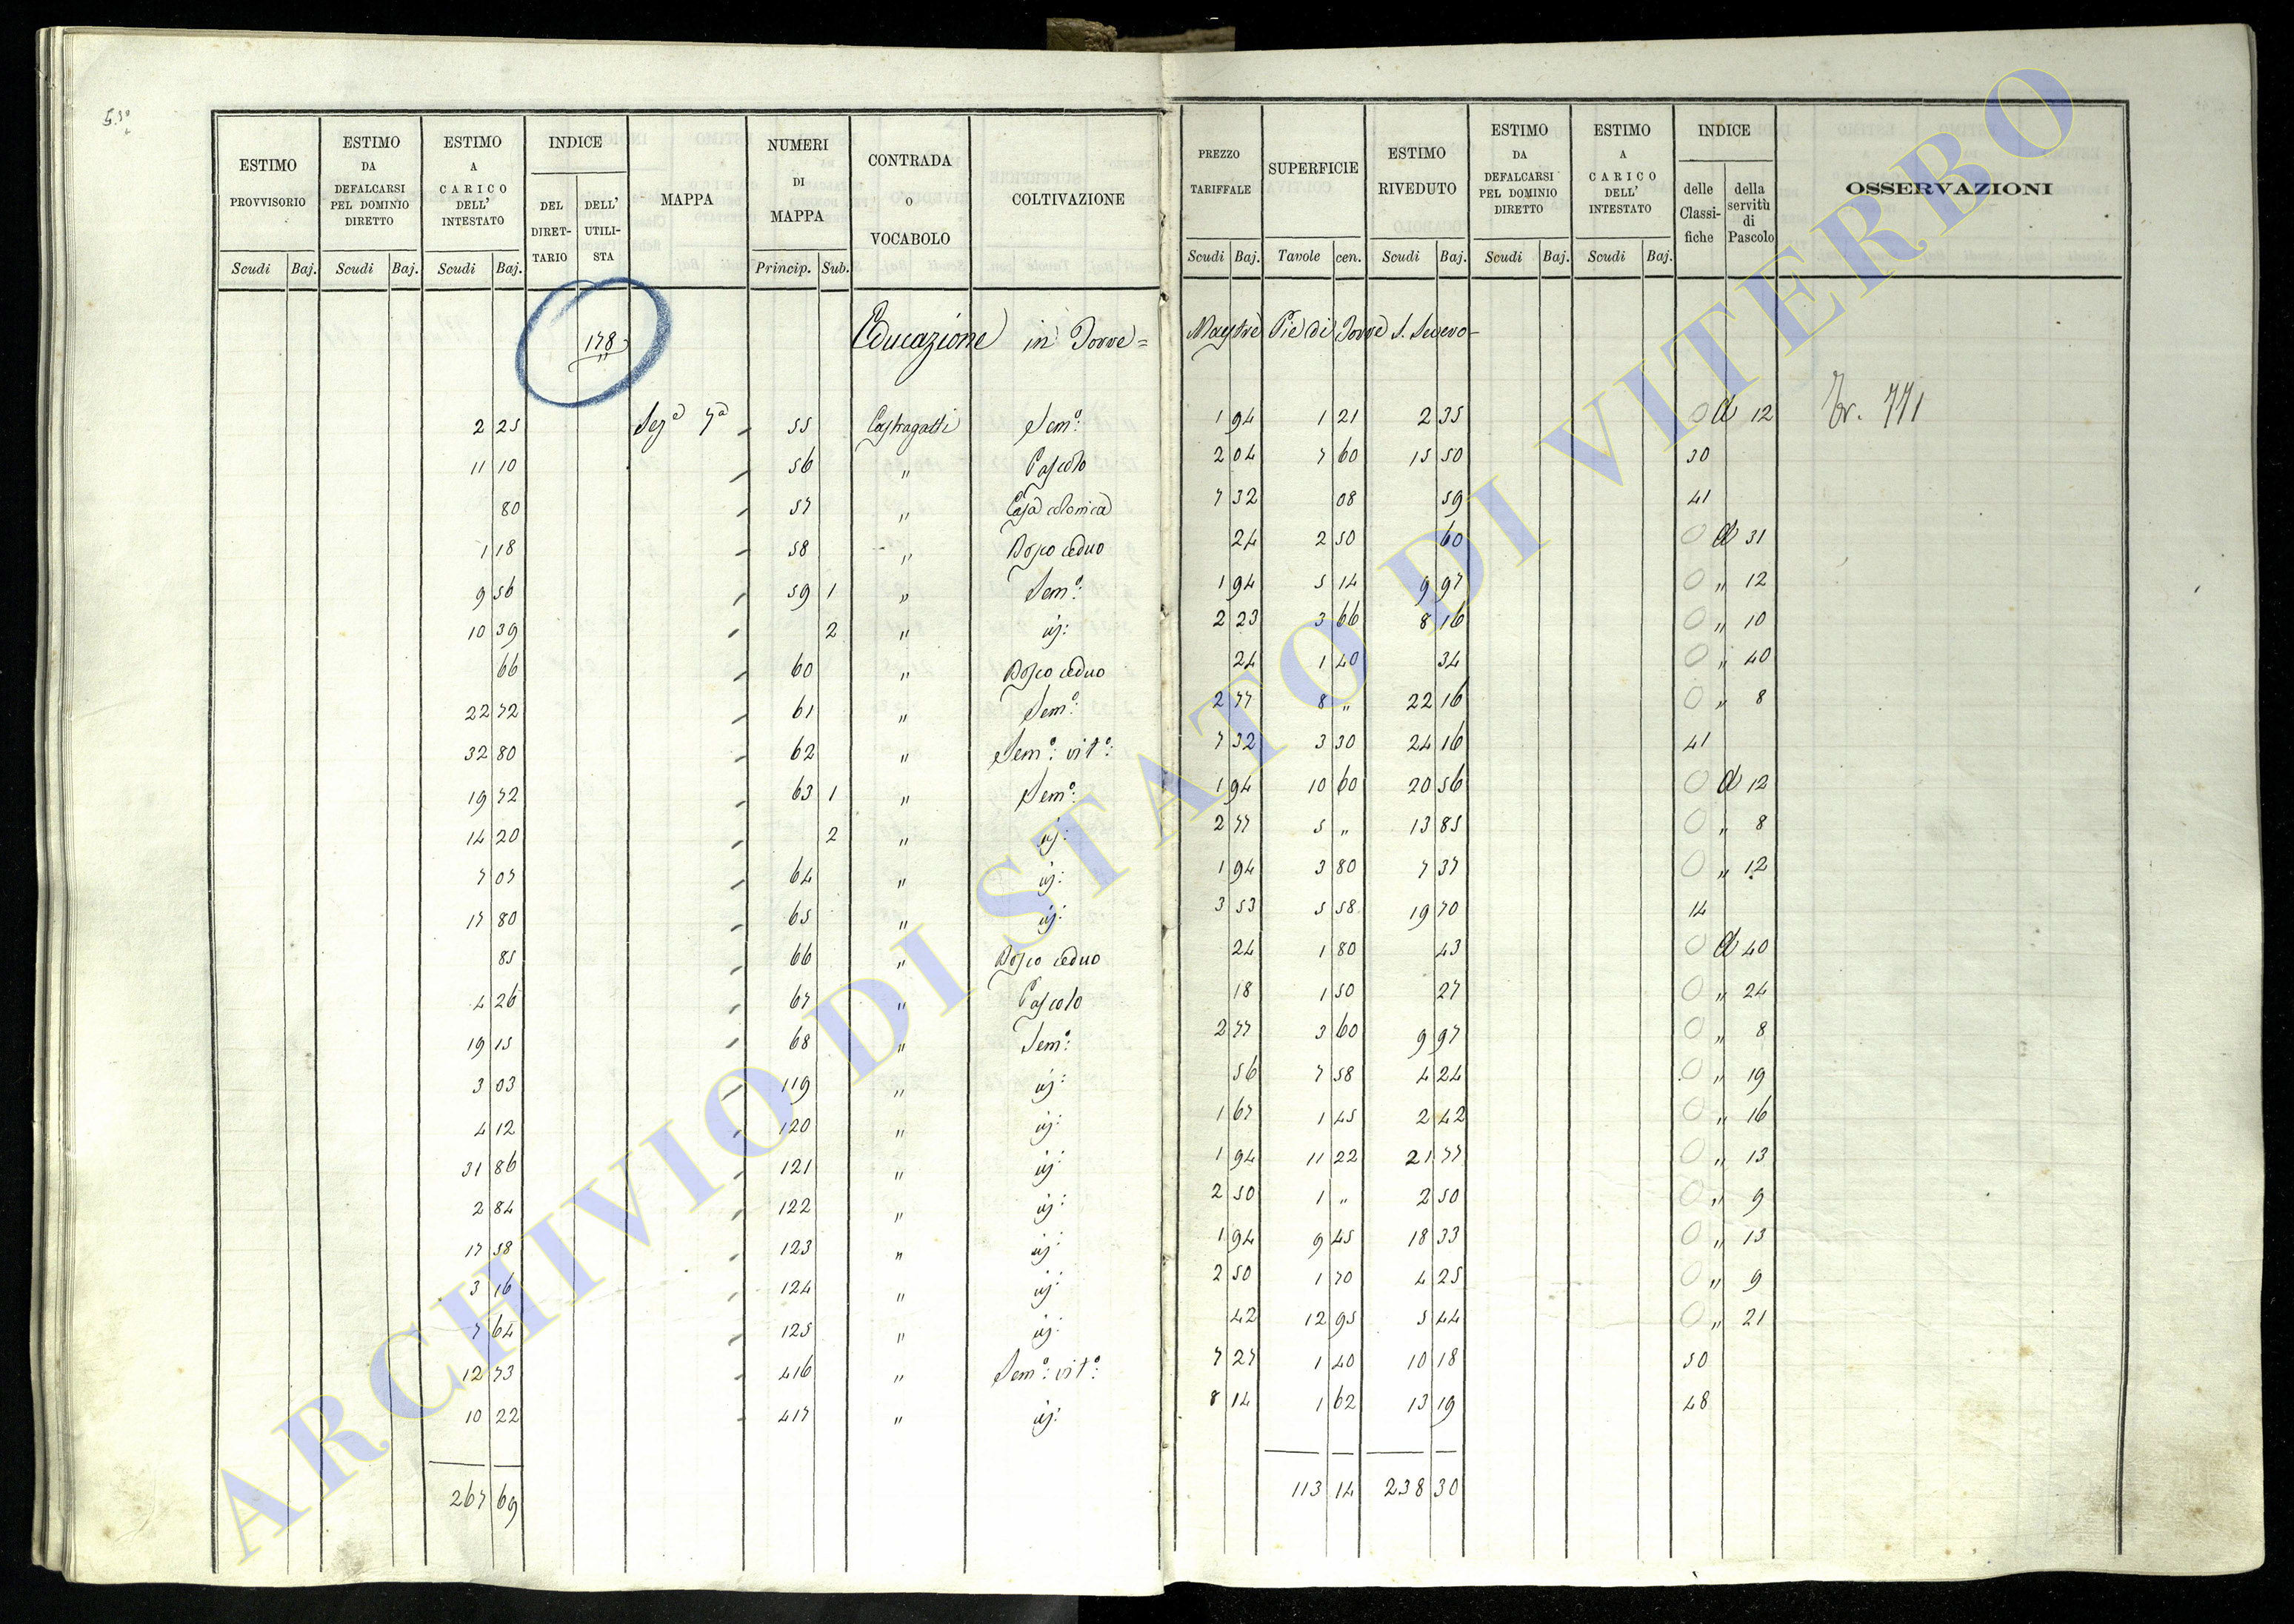 5.30
ESTIMO PROVVISORIO | ESTIMO DA DEFALCARSI PEL DOMINIO DIRETTO | ESTIMO A CARICO DELL' INTESTATO | INDICE DEL DIRETTARIO | DELL' UTILISTA | MAPPA | NUMERI DI MAPPA | CONTRADA O VOCABOLO | COLTIVAZIONE | PREZZO TARIFFALE | SUPERFICIE | ESTIMO RIVEDUTO | ESTIMO DA DEFALCARSI PEL DOMINIO DIRETTO | ESTIMO A CARICO DELL' INTESTATO | INDICE delle Classifiche | della servitù di Pascolo | OSSERVAZIONI
Scudi Baj. | Scudi Baj. | Scudi Baj. | Princip. Sub. | Scudi Baj. | Tavole cen. | Scudi Baj. | Scudi Baj. | Scudi Baj.
178 Educazione in Torre= Maestre Pie di Torre S. Severo
2 25 Sezª 7ª 55 Castragatti Semº: 1 94 1 21 2 35 0 a 12 Tr. 771
11 10 56 " Pascolo 2 04 7 60 15 50 30
80 57 " Casa colonica 7 32 08 59 41
1 18 58 " Bosco ceduo 24 2 50 60 0 a 31
9 56 59 1 " Semº: 1 94 5 14 9 97 0 " 12
10 39 2 " id: 2 23 3 66 8 16 0 " 10
66 60 " Bosco ceduo 24 1 40 34 0 " 40
22 72 61 " Semº: 2 77 8 " 22 16 0 " 8
32 80 62 " Semº: vitº: 7 32 3 30 24 16 41
19 72 63 1 " Semº: 1 94 10 60 20 56 0 a 12
14 20 2 " id: 2 77 5 " 13 85 0 " 8
7 07 64 " id: 1 94 3 80 7 37 0 " 12
17 80 65 " id: 3 53 5 58 19 70 14
85 66 " Bosco ceduo 24 1 80 43 0 a 40
4 26 67 " Pascolo 18 1 50 27 0 " 24
19 15 68 " Semº: 2 77 3 60 9 97 0 " 8
3 03 119 " id: 56 7 58 4 24 0 " 19
4 12 120 " id: 1 67 1 45 2 42 0 " 16
31 86 121 " id: 1 94 11 22 21 77 0 " 13
2 84 122 " id: 2 50 1 " 2 50 0 " 9
17 58 123 " id: 1 94 9 45 18 33 0 " 13
3 16 124 " id: 2 50 1 70 4 25 0 " 9
7 64 125 " id: 42 12 95 5 44 0 " 21
12 73 416 " Semº: vitº: 7 27 1 40 10 18 50
10 22 417 " id: 8 14 1 62 13 19 48
267 69 113 14 238 30
ARCHIVIO DI STATO DI VITERBO